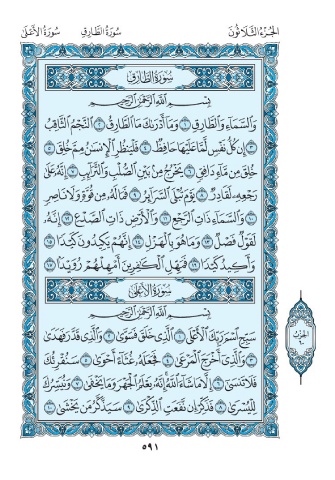 الجزء الثلاثون سورة الطارق سورة الأعلى
سورة الطارق
بسم الله الرحمن الرحيم
والسماء والطارق ١ وما أدرىك ما الطارق ٢ النجم الثاقب
٣ إن كل نفس لما عليها حافظ ٤ فلينظر الإنسن مم خلق ٥
خلق من ماء دافق ٦ يخرج من بين الصلب والترائب ٧ إنه على
رجعه لقادر ٨ يوم تبلى السرائر ٩ فما له من قوة ولا ناصر
١٠ والسماء ذات الرجع ١١ والأرض ذات الصدع ١٢ إنه
لقول فصل ١٣ وما هو بالهزل ١٤ إنهم يكيدون كيدا ١٥
وأكيد كيدا ١٦ فمهل الكافرين أمهلهم رويدا ١٧
سورة الأعلى
بسم الله الرحمن الرحيم
سبح اسم ربك الأعلى ١ الذي خلق فسوى ٢ والذي قدر فهدى
٣ والذي أخرج المرعى ٤ فجعله غثاء أحوى ٥ سنقرئك
فلا تنسى ٦ إلا ما شاء الله إنه يعلم الجهر وما يخفى ٧ ونيسرك
لليسرى ٨ فذكر إن نفعت الذكرى ٩ سيذكر من يخشى ١٠
٥٩١